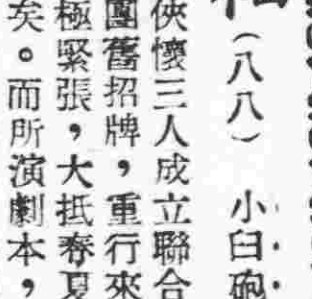 （八八）　小臼砲
俠懷三人成立聯合
團舊招牌，重行來
極緊張，大抵春夏
矣。而所演劇本，